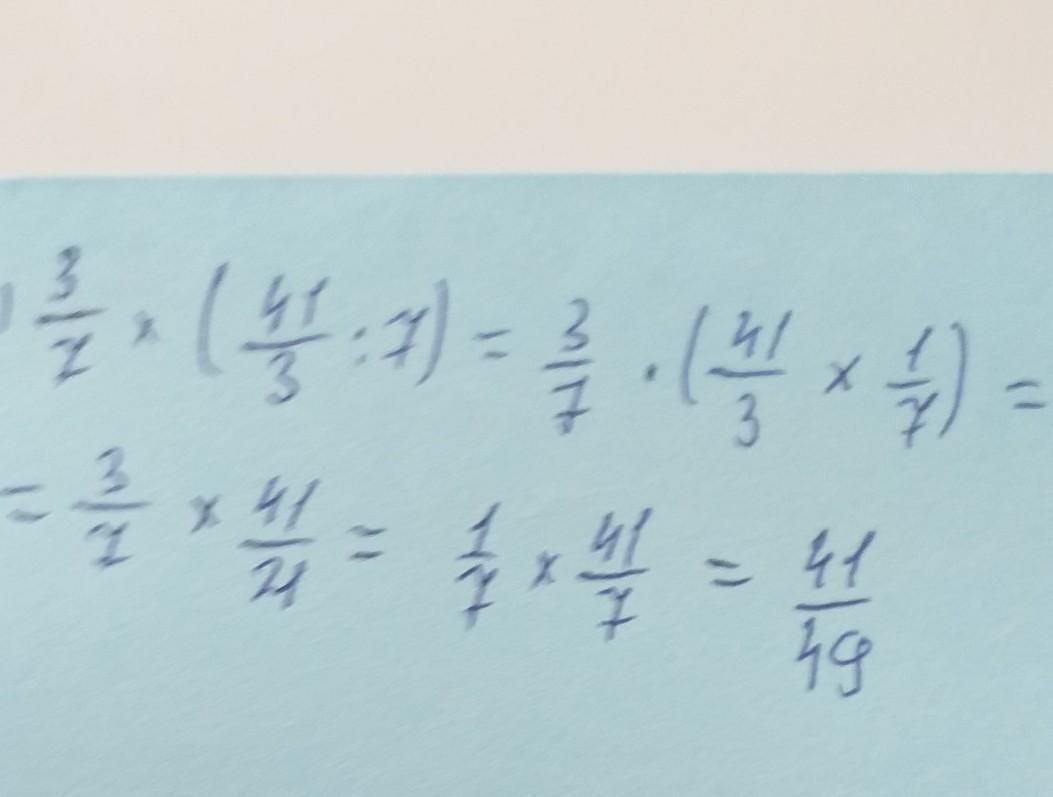 ) 3/7 × (41/3 : 7) = 3/7 · (41/3 × 1/7) =
= 3/7 × 41/21 = 1/7 × 41/7 = 41/49